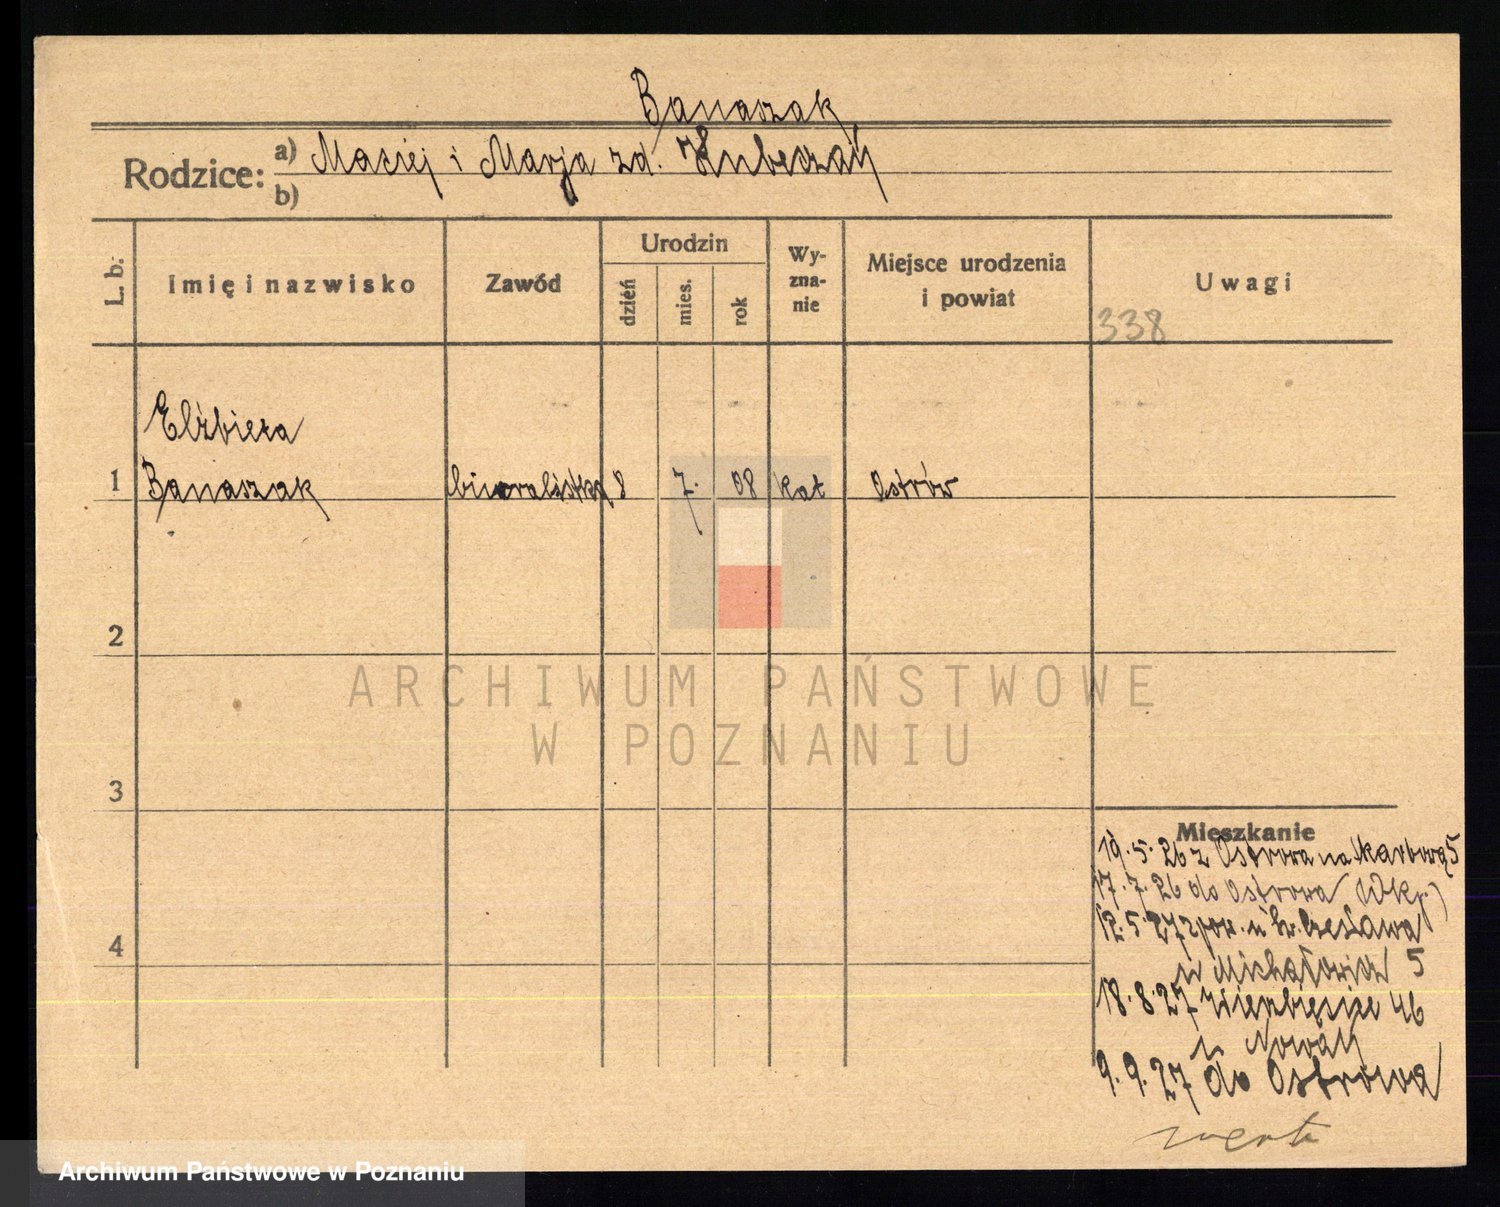 Banaszak
Rodzice: a) Maciej i Marja zd. Kubeczak
b)
L. b. Imię i nazwisko Zawód Urodzin dzień mies. rok Wy-zna-nie Miejsce urodzenia i powiat Uwagi
338
Elżbieta
1 Banaszak biuralistka 8 7. 08 kat Ostrów
2
ARCHIWUM PAŃSTWOWE
W POZNANIU
3
Mieszkanie
19.5.26 z Ostrowa na Skarbową 5
17.7.26 do Ostrowa (Wkp.)
4
12.5.27 z pow. u Czesława
u Michałowicz 5
18.8.27 Wierzbięcice 46
u Nowak
9.9.27 do Ostrowa
Archiwum Państwowe w Poznaniu